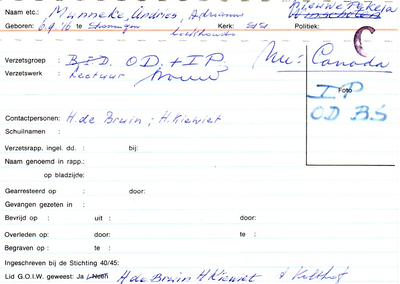 Naam etc.: Munneke, Andries, Adrianus
Geboren: 6.9.'16 te Groningen Kerk: Politiek:
boekhouder
Verzetsgroep : B.S. O.D. + I.P. nu: Canada
Verzetswerk : Lectuur C
Foto
IP
OD BS
Contactpersonen: H. de Bruin; H. Kiewiet
Schuilnamen :
Verzetsrapp. ingel. dd. : bij:
Naam genoemd in rapp.:
op bladzijde:
Gearresteerd op : door:
Gevangen gezeten in :
Bevrijd op : uit : door:
Overleden op: te : door:
Begraven op : te :
Ingeschreven bij de Stichting 40/45:
Lid G.O.I.W. geweest: Ja / Neen H de Bruin H Kiewiet